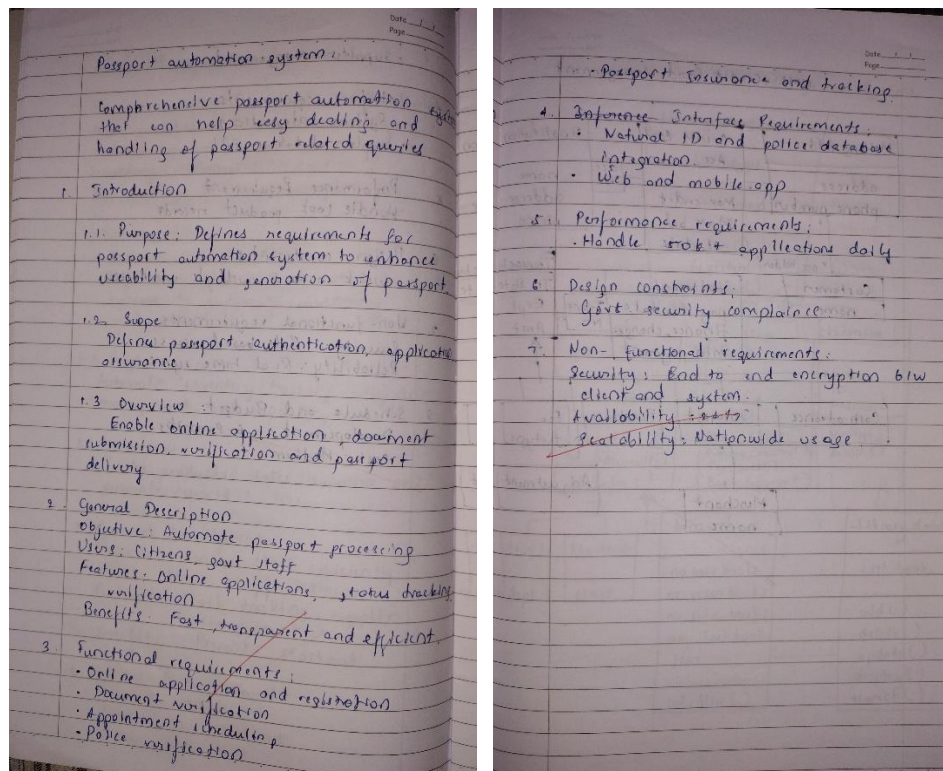 Date
Page
Passport automation system.
Comphrehencive passport automation system
that can help easy dealing and
handling of passport related queries
1. Introduction
1.1. Purpose: Defines requirements for
passport automation system to enhance
useability and generation of passport.
1.2 Scope
Defines passport authentication, application
assurance
1.3 Overview:
Enable online application document
submission, verification and passport
delivery
2. General Description
Objective: Automate passport processing
Users: Citizens, govt staff
Features: Online applications, status tracking
verification
Benefits: Fast, transparent and efficient.
3. Functional requirements:
• Online application and registration
• Document verification
• Appointment scheduling
• Police verification
Date
Page
• Passport Insurance and tracking.
4. Inference Interface Requirements:
• Natural ID and police database
integration
• Web and mobile app
5. Performance requirements:
• Handle applications daily
6. Design constraints:
Govt security complaince
7. Non-functional requirements:
Security: End to end encryption b/w
client and system.
Availability:
Scalability: Nationwide usage